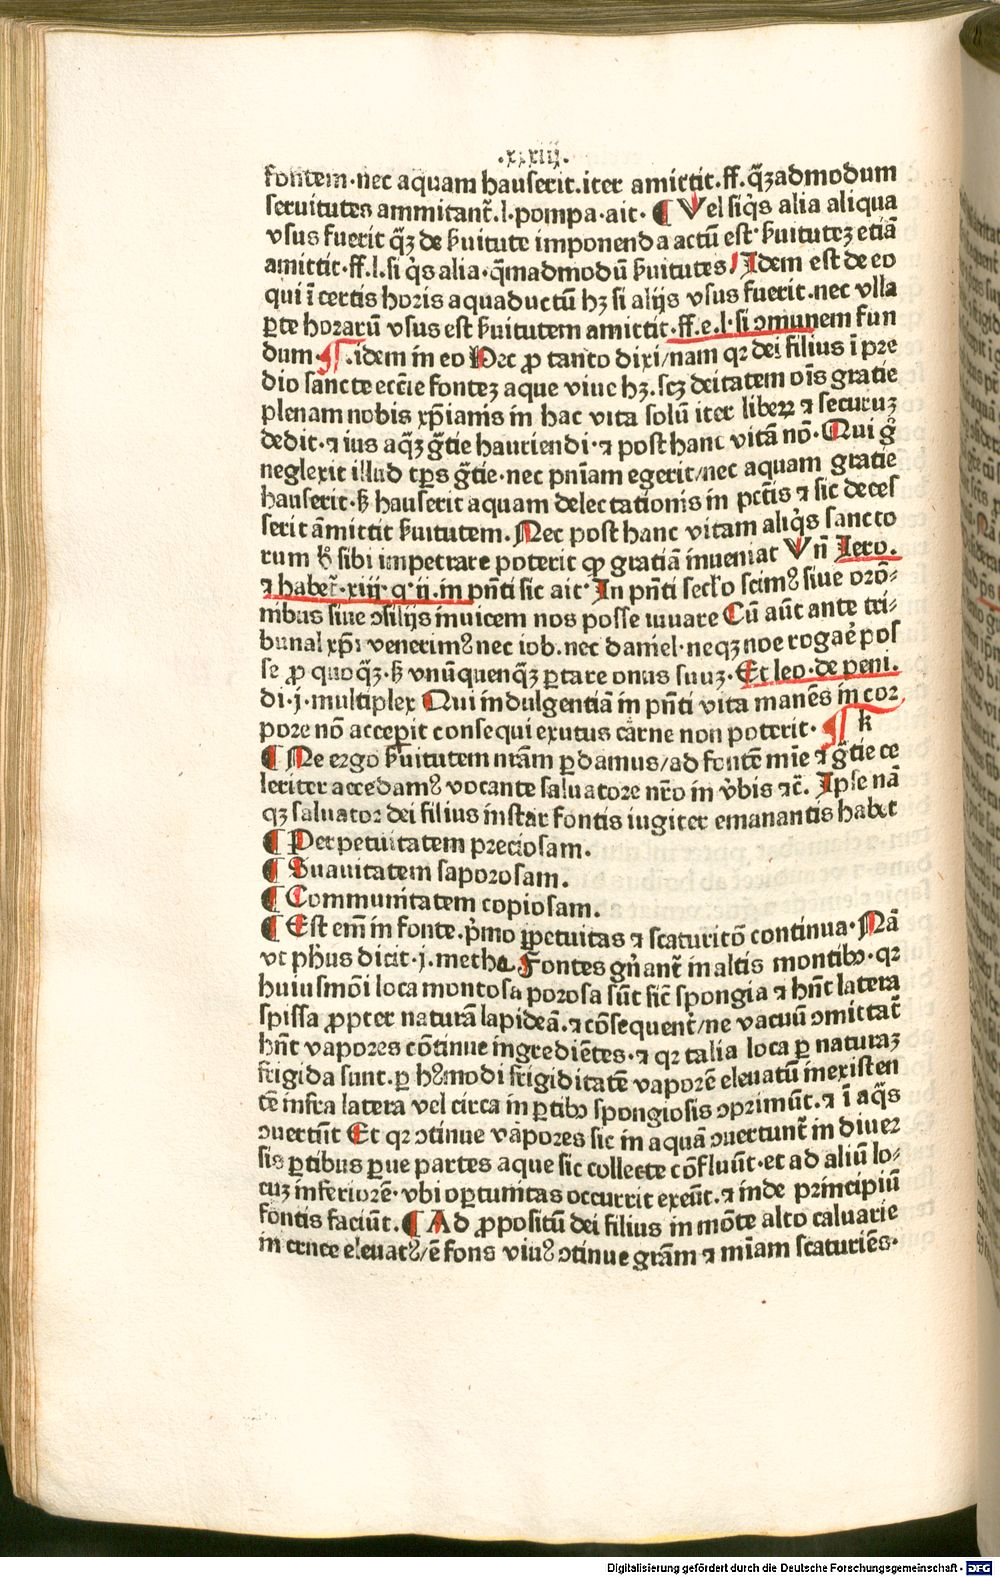 .xxxiij.
fontem·nec aquam hauserit.iter amittit.ff.q̃ꝫadmodum
seruitutes ammitant᷑.l·pompa·ait· ¶ Vel siq̃s alia aliqua
vsus fuerit q̃ꝫ de ẜuitute imponenda actũ est· ẜuituteꝫ etiã
amittit·ff.l.si q̃s alia·q̃madmodũ ẜuitutes/ Idem est de eo
qui ĩ certis horis aquaductũ hꝫ si alijs vsus fuerit·nec vlla
ꝑte horarũ vsus est ẜuitutem amittit·ff.e.l·si ꝯmunem fun
dum·¶.idem in eo Hec ꝓ tanto dixi/nam qꝛ dei filius ĩ pre
dio sancte eccĩe fonteꝫ aque viue hꝫ.scꝫ deitatem oĩs gratie
plenam nobis xp̃ianis in hac vita solũ iter libeꝝ ⁊ securuꝫ
dedit·⁊ ius aq̃ꝫ g̃tie hauriendi·⁊ post hanc vitã nõ·Qui g̊
neglexit illud tp̃s g̃tie·nec pnĩam egerit/nec aquam gratie
hauserit·ẜꝫ hauserit aquam delectationis in pctĩs ⁊ sic deces
serit ãmittit ẜuitutem.Nec post hanc vitam aliq̃s sancto
rum ẜꝫ sibi impetrare poterit ꝙ gratiã inueniat Vñ Jero.
⁊ habet᷑·xiij·q·ij.in pñti sic ait· In pñti sectõ scimꝰ siue orõ⸗
nibus siue ꝯsilijs inuicem nos posse iuuare Cũ aũt ante tri⸗
bunal xp̃i venerimꝰ nec iob.nec daniel·neqꝫ noe rogaẽ pos
se ꝓ quoq̃ꝫ·ẜꝫ vnũquenq̃ꝫ ꝑtare onus suuꝫ·Et leo·de peni.
di·j·multiplex Qui indulgentiã in pñti vita manẽs in cor
pore nõ acceperit consequi exutus carne non poterit· ¶ k
¶ Ne ergo ẜuitutem nrãm ꝑdamus/ad fontẽ mĩe ⁊ g̃tie ce
leriter accedamꝰ vocante saluatore nrõ in ṽbis ⁊c̃. Ipse nã
qꝫ saluator dei filius instar fontis iugiter emanantis habet
¶ Perpetuitatem preciosam.
¶ Suauitatem saporosam.
¶ Communitatem copiosam.
¶ Est em̃ in fonte.p̃mo ꝑpetuitas ⁊ scaturitõ continua·Nã
vt ph̃us dicit·j.metha.Fontes gñant᷑ in altis montibꝰ·qꝛ
huiusmõi loca montosa porosa sũt sic̃ spongia ⁊ hñt latera
spissa ꝓpter naturã lapideã.⁊ cõsequent᷑/ne vacuũ ꝯmittat᷑
hñt vapores cõtinue ingrediẽtes·⁊ qꝛ talia loca ꝑ naturaꝫ
frigida sunt·ꝑ hꝰmodi frigiditatẽ vaporẽ eleuatũ inexisten
tẽ infra latera vel circa in ꝑtibꝰ spongiosis ꝯprimũt.⁊ ĩ aq̃s
ꝯuertũt Et qꝛ ꝯtinue vapores sic in aquã ꝯuertunt᷑ in diuer
sis ꝑtibus ꝑue partes aque sic collecte cõfluũt·et ad aliũ lo⸗
cuꝫ inferiorẽ·vbi oꝑtunitas occurrit exeũt.⁊ inde principiũ
fontis faciũt.¶ Ad ꝓpositũ dei filius in mõte alto caluarie
in cruce eleuatꝰ/ẽ fons viuꝰ ꝯtinue grãm ⁊ mĩam scaturiẽs·
Digitalisierung gefördert durch die Deutsche Forschungsgemeinschaft · DFG